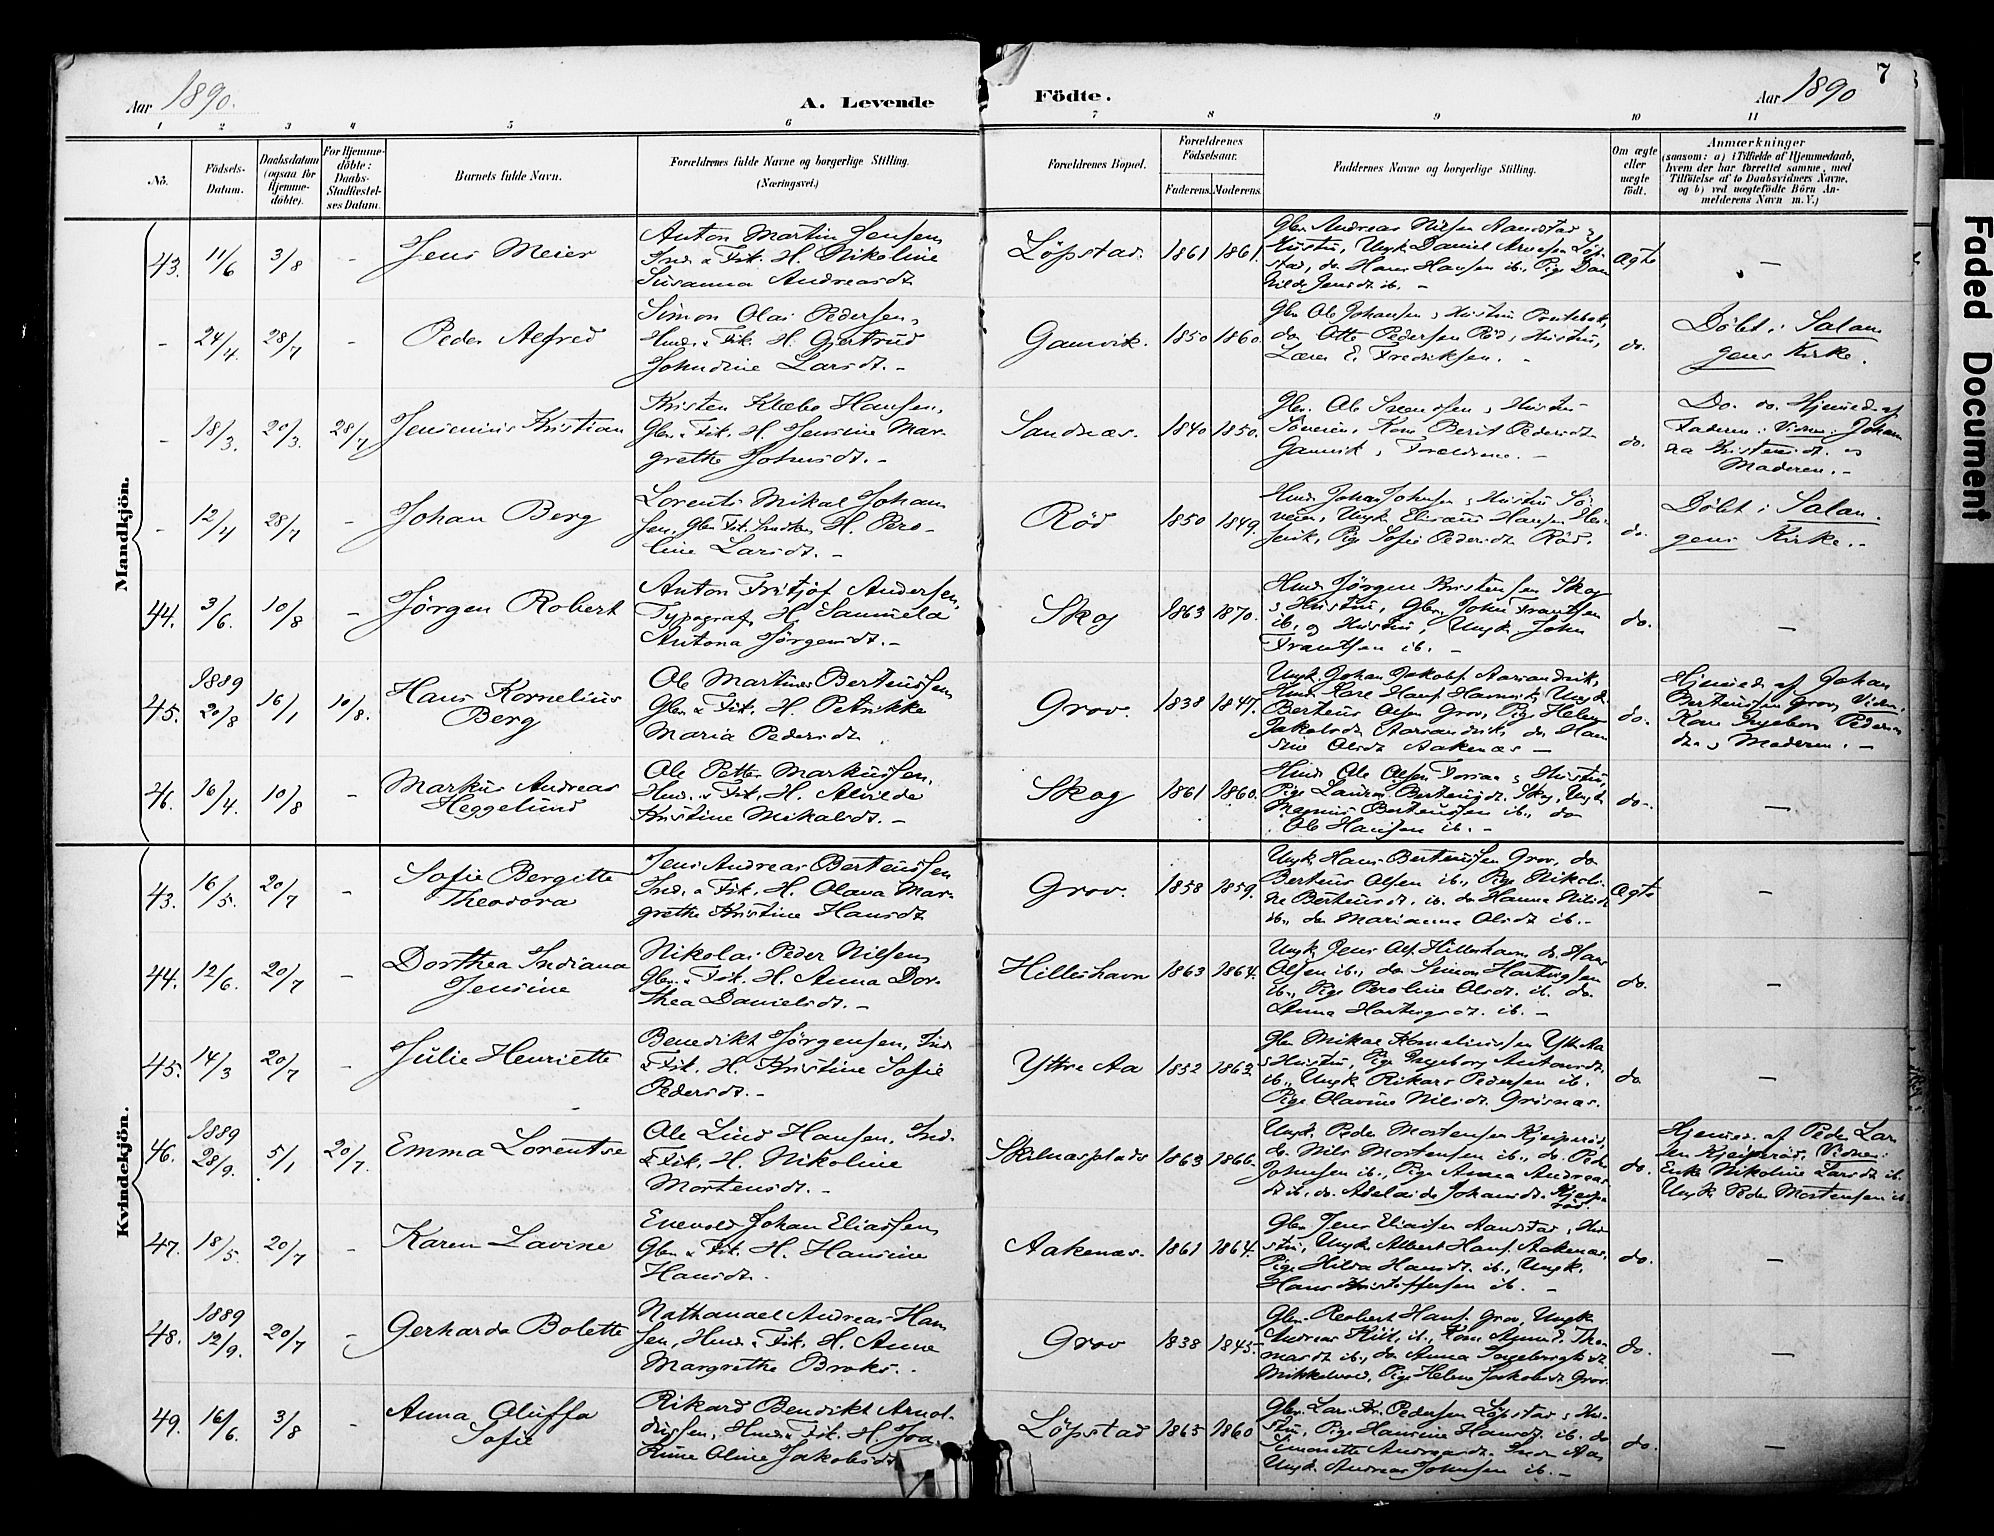 7
Aar 1890.
A. Levende
Födte.
Aar 1890
1 2 3 4 5 6 7 8 9 10 11
No.
Födsels-
Datum.
Daabsdatum
(ogsaa for
Hjemme-
döbte).
For Hjemme-
döbte:
Daabs-
Stadfæstel-
ses Datum.
Barnets fulde Navn.
Forældrenes fulde Navne og borgerlige Stilling.
(Næringsvei.)
Forældrenes Bopæl.
Forældrenes
Födselsaar.
Faderens. Moderens.
Faddernes Navne og borgerlige Stilling.
Om ægte
eller
uægte
født.
Anmærkninger
(saasom: a) i Tilfælde af Hjemmedaab,
hvem der har forrettet samme, med
Tilföielse af to Daabsvidners Navne,
og b) ved uegtefödte Börn An-
melderens Navn m. V.)
Mandkjön.
43. 11/6 3/8 - Jens Meier
Anton Martin Jensen
Ind. & Fisk. H. Nikoline
Susanna Andreasdt.
Löpstad. 1861 1861.
Gbr. Andreas Nilsen Aanstad &
Hustru, Ungk. Daniel
do. Hans Hansen ib., Pige
Jensdt. ib. -
Ægte -
- 24/4. 28/7 - Peder Alfred
Simon Olai Pedersen,
Hmd. & Fisk. H. Gjertrud
Johndine Larsdt. -
Gamvik. 1850 1860.
Gbr. Ole Johansen & Hustru
do Otte Pedersen Rød & Hustru,
Lærer E. Fredriksen. -
do.
Döbt i Salan
gens Kirke.
- 18/3. 20/3. 28/7 Jensinius Kristian
Kristen Klæbo Hansen,
Gbr. & Fisk. H. Jensine Mar-
grethe Johnsdt. -
Sandnæs. 1840 1850.
Gbr. Ole Svendsen & Hustru
Kone Berit Pedersdt.
Gamvik & Forældrene. -
do.
Do. do. Hjemmed. af
Faderen. Vidner: Johan
na Kristensdt. &
Moderen. -
- 12/4 28/7 - Johan Berg
Lorents Mikal Johan
sen, Gbr. Fisk. H. Pero-
line Larsdt. -
Röd 1850 1849.
Hmd. Johan Johnsen & Hustru
Ungk. Hansen
Pige Sofie Pedersdt. Röd.
do.
Döbt i Salan.
gens Kirke. -
44. 3/6. 10/8 - Jörgen Robert
Anton Fritjof Andersen,
Typograf, H. Samuela
Antona Jörgensdt. -
Skog 1863 1870.
Hmd. Jörgen Kristensen Skog
& Hustru, Gbr. John Frantsen
ib. og Hustru, Ungk. John
Frantsen ib. -
do. -
45. 1889 20/8 16/1 10/8. Hans Kornelius
Berg
Ole Martinus Berteussen
Gbr. & Fisk. H. Petrikke
Maria Pedersdt.
Grov. 1838 1847.
Ungk. Johan Jakobs.
Hmd. Hans. Ungk.
Berteus Olsen Grov, Pige Helene
Jakobsdt. do Han
sine Olsdt. Aakenæs -
do.
Hjemmed. af Johan
Berteussen Grov, Vidner:
Kone Ingebor Peders
dt. & Moderen. -
46. 16/4. 10/8 - Markus Andreas
Heggelund
Ole Petter Markussen,
Hmd. & Fisk. H. Alvilde
Kristine Mikalsdt. -
Skog 1861 1860.
Hmd. Ole Olsen & Hustru,
Pige Berteusdt. Skog, Ungk.
Magnus Berteussen ib., do
Ole Hansen ib. -
do. -
Kvindekjön.
43. 16/5. 20/7 - Sofie Bergitte
Theodora
Jens Andreas Berteussen
Ind. & Fisk. H. Olava Mar-
grethe Kristine Hansdt.
Grov. 1858 1859.
Ungk. Hans Berteussen Grov, do
Berteus Olsen ib., Pige Nikoli-
ne Berteusdt. ib. do Hanna Nilsdt.
ib., do Marianna Olsdt. ib. -
Ægte -
44. 12/6. 20/7 - Dorthea Indiana
Jensine
Nikolai Peder Nilsen
Gbr. & Fisk. H. Anna Dor-
thea Danielsdt. -
Hilleshavn 1863 1864.
Ungk. Jens Ols. Hilleshavn do. Hans
Olsen ib., do Simon Hartvigsen
ib., Pige Peroline Olsdt. ib. do.
Anna Hartvigsdt. ib. -
do. -
45. 14/3 20/7 - Julie Henriette
Benedikt Jörgensen, Ind
& Fisk. H. Kristine Sofie
Pedersdt. -
Yttre Aa 1852 1863.
Gbr. Mikal Kornelinssen Yttre Aa
& Hustru, Pige Ingeborg Antonsdt.
ib., Ungk. Rikard Pedersen ib.
Pige Olavine Nilsdt. Grisnæs.
do -
46. 1889 28/9. 5/1 20/7. Emma Lorentse
Ole Lind Hansen, Ind.
& Fisk. H. Nikoline
Mortensdt. -
1863 1866.
Ungk. Peder Mortensen
do. Nils Mortensen ib., do. Peder
Johnsen ib., Pige Anna Andreas
dt. ib., do. Adelaide Johansdt.
do.
Hjemmed. af Peder Lar
sen Vidner:
Enke Nikoline Larsdt. ib.
Ungk. Peder Mortensen ib.
47. 18/5. 20/7 - Karen Lavine
Enevold Johan Eliassen
Gbr. & Fisk. H. Hansine
Hansdt.
Aakenæs. 1861 1864.
Gbr. Jens Eliassen Aanstad, Hu
stru, Ungk. Albert Hans. Aakenæs,
Pige Hilda Hansdt. ib., Ungk.
Hans Kristoffersen ib. -
do. -
48. 1889 12/9. 20/7 - Gerharda Bolette
Nathanael Andreas Han
sen, Hmd. & Fisk. H. Anne
Margrethe Broks. -
Grov 1838 1845.
Gbr. Hans. Grov, Ungk.
Andreas ib., Kone Tho-
masdt. ib., do Anna Ingebrigtsdt.
Pige Helene Jakobsdt. Grov.
do. -
49. 16/6. 3/8 - Anna Oluffa
Sofie
Rikard Bendikt Arnol-
dussen, Hmd. & Fisk. H. Joa
kime Oline Jakobsdt.
Löpstad 1865 1860
Gbr. Lars Kr. Pedersen Löpstad & Hu-
stru, Pige Hansine Hansdt. ib. do
Simonette Andreasdt.
Ungk. Andreas Johnsen ib. -
do. -
Faded Document